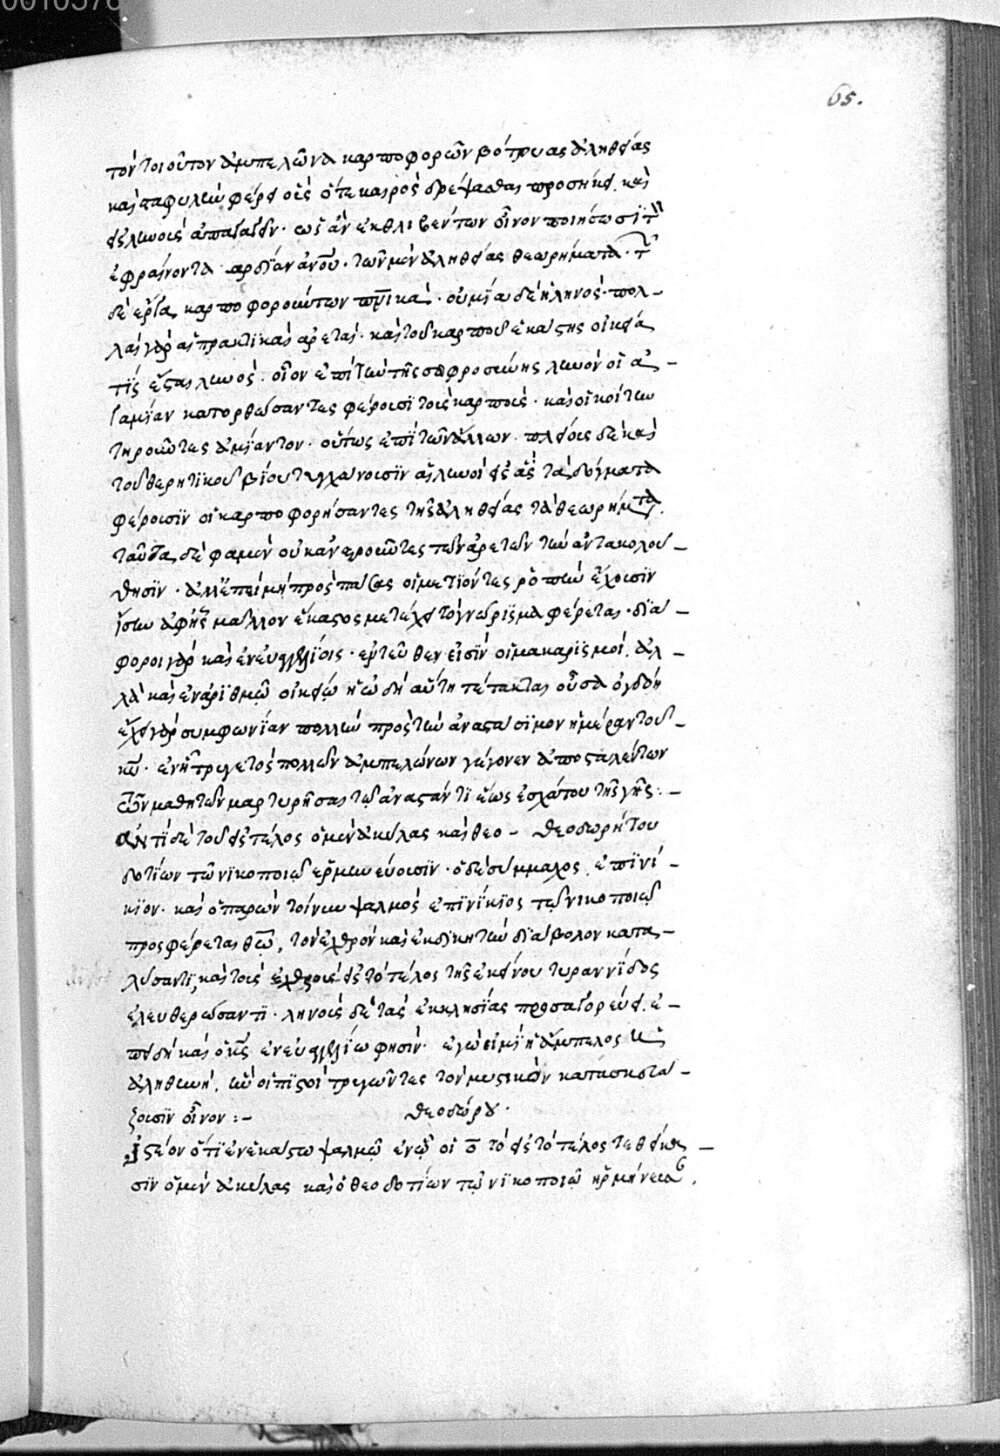 0010576
65.
τὸν τοιοῦτον ἀμπελῶνα καρποφορῶν βότρυας ἀληθείας
καὶ σταφυλὴν φέρει οἷς ὅτε καιρὸς δρέψασθαι προσήκει καὶ
εἰς ληνοὺς ἀπαγαγεῖν· ὡς ἂν ἐκθλιβέντων οἶνον ποιήσωσι τὸν
εὐφραίνοντα καρδίαν ἀνου· τῶν μὲν ἀληθείας θεωρήματα· τ
δὲ ἔργα καρποφορούντων πρακτικά· οὐ μία δὲ ἡ ληνός· πολ-
λαὶ γὰρ αἱ πρακτικαὶ ἀρεταί· καὶ τοῦ καρποῦ ἑκάστης οἰκεία
τίς ἐστι ληνός· οἷον ἐπὶ τὴν τῆς σωφροσύνης ληνὸν οἱ ἀ-
γαμίαν κατορθώσαντες φέρουσι τοὺς καρπούς· καὶ οἱ κοίτην
τηροῦντες ἀμίαντον· οὕτως ἐπὶ τῶν ἄλλων· πλείους δὲ καὶ
τοῦ θεωρητικοῦ βίου τυγχάνουσιν αἱ ληνοὶ εἰς ἃς τὰ δόγματα
φέρουσιν οἱ καρποφορήσαντες τῆς ἀληθείας τὰ θεωρήματα.
ταῦτα δέ φαμεν οὐκ ἀναιροῦντες τῶν ἀρετῶν τὴν ἀντακολου-
θησιν· ἀλλ' ἐπεὶ μὴ πρὸς πάσας οἱ μετιόντες ῥοπὴν ἔχουσιν
ἴσην ἀφ' ἧς μᾶλλον ἕκαστος μετέχει τὸ γνώρισμα φέρεται· διά-
φοροι γὰρ καὶ ἐν εὐαγγελίοις· ἐντεῦθεν εἰσὶν οἱ μακαρισμοί. ἀλ-
λὰ καὶ ἐν ἀριθμῷ οἰκείῳ ἡ ᾠδὴ αὕτη τέτακται οὖσα ὀγδόη
ἔχει γὰρ συμφωνίαν πολλὴν πρὸς τὴν ἀναστάσιμον ἡμέραν τοῦ
κυ· ἐν ᾗ τρυγητὸς πολλῶν ἀμπελώνων γέγονεν ἀποσταλέντων
τῶν μαθητῶν μαρτυρῆσαι τῷ ἀναστάντι ἕως ἐσχάτου τῆς γῆς:-
Ἀντὶ δὲ τοῦ εἰς τέλος ὁ μὲν ἀκύλας καὶ θεο- θεοδωρήτου
δοτίων τῷ νικοποιῷ ἑρμηνεύουσιν· ὁ δὲ σύμμαχος, ἐπινί-
κιον· καὶ ὁ παρὼν τοίνυν ψαλμὸς ἐπινίκιος τῷ νικοποιῷ
προσφέρεται θεῷ, τὸν ἐχθρὸν καὶ ἐκδικητὴν διάβολον κατα-
λύσαντι, καὶ τοὺς ἐχθροὺς εἰς τὸ τέλος τῆς ἐκείνου τυραννίδος
ἐλευθερώσαντι· ληνοὺς δὲ τὰς ἐκκλησίας προσαγορεύει. ἐ-
πειδὴ καὶ ὁ κς ἐν εὐαγγελίῳ φησίν· ἐγώ εἰμι ἡ ἄμπελος ἡ
ἀληθινή, ἣν οἱ πιστοὶ τρυγῶντες τὸν μυστικὸν κατασκευά-
ζουσιν οἶνον:- θεοδώρου·
Ἰστέον ὅτι ἐν ἑκάστῳ ψαλμῷ ἐν ᾧ οἱ ο τὸ εἰς τὸ τέλος τεθείκα-
σιν ὁ μὲν ἀκύλας καὶ ὁ θεοδοτίων τῷ νικοποιῷ ἡρμήνευσ.